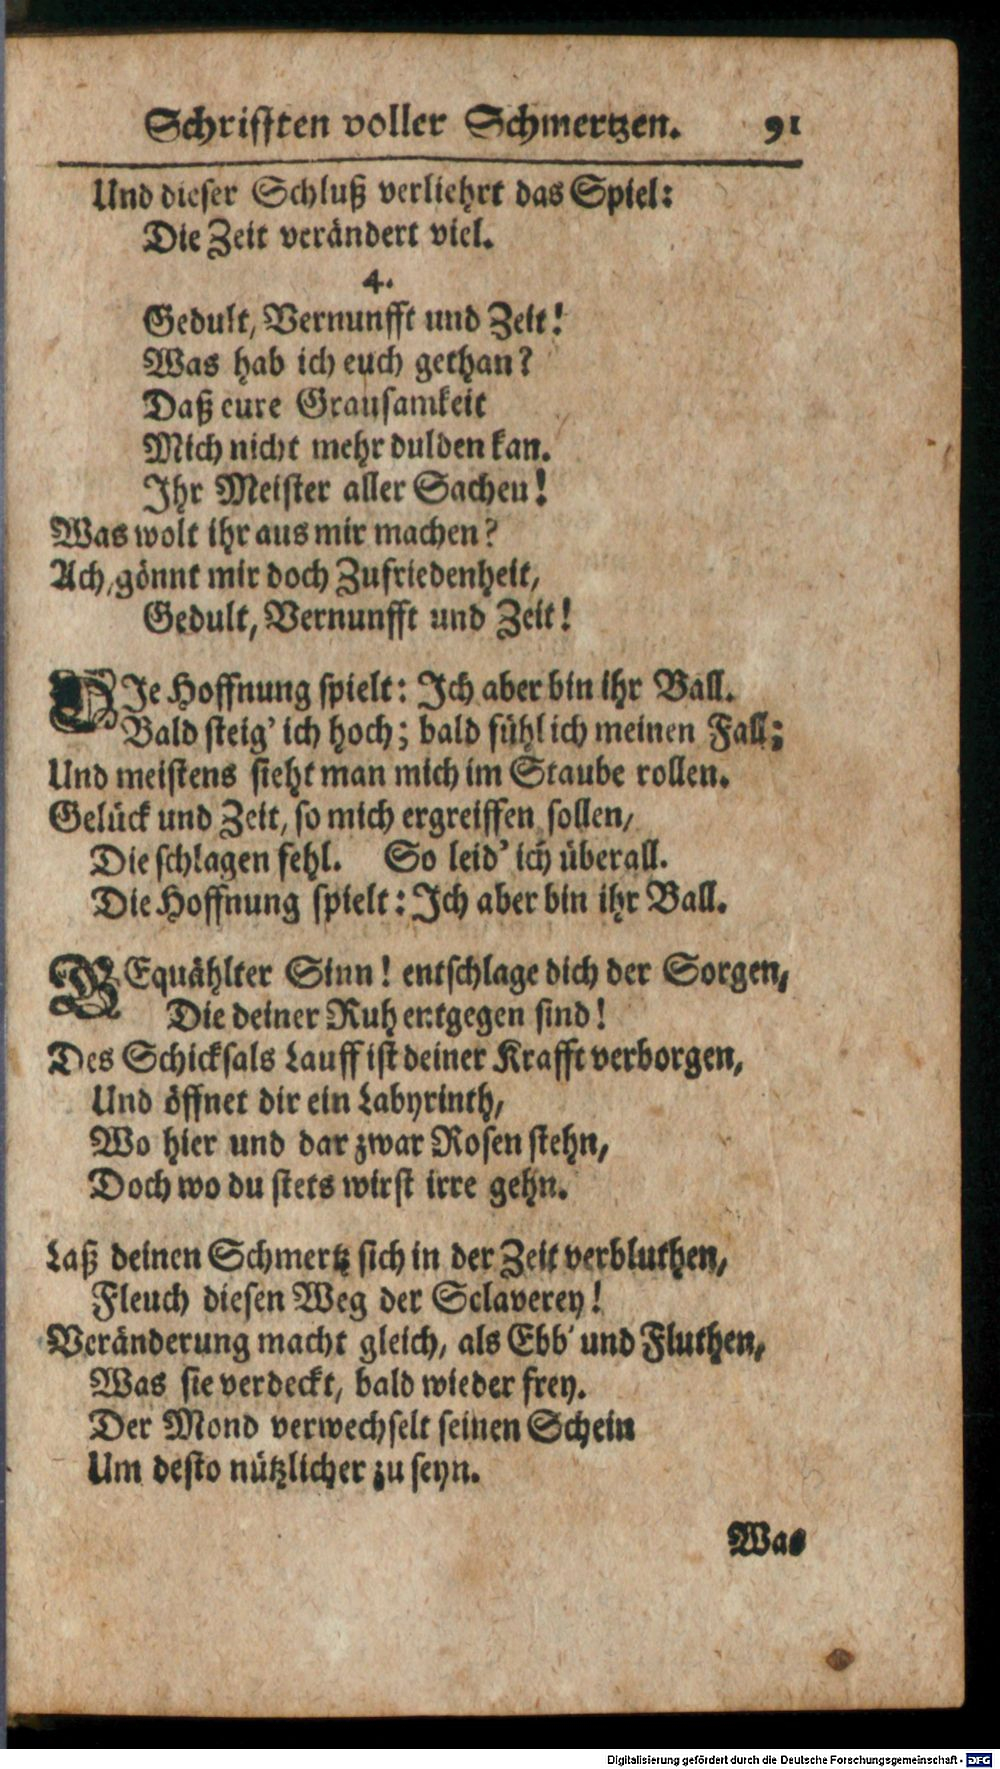 Schrifften voller Schmertzen. 91
Und dieser Schluß verliehrt das Spiel:
Die Zeit verändert viel.
4.
Gedult, Vernunfft und Zeit!
Was hab ich euch gethan?
Daß eure Grausamkeit
Mich nicht mehr dulden kan.
Ihr Meister aller Sachen!
Was wolt ihr aus mir machen?
Ach, gönnt mir doch Zufriedenheit,
Gedult, Vernunfft und Zeit!
DIe Hoffnung spielt: Ich aber bin ihr Ball.
Bald steig' ich hoch; bald fühl ich meinen Fall;
Und meistens sieht man mich im Staube rollen.
Gelück und Zeit, so mich ergreiffen sollen,
Die schlagen fehl. So leid' ich überall.
Die Hoffnung spielt: Ich aber bin ihr Ball.
BEquählter Sinn! entschlage dich der Sorgen,
Die deiner Ruh entgegen sind!
Des Schicksals Lauff ist deiner Krafft verborgen,
Und öffnet dir ein Labyrinth,
Wo hier und dar zwar Rosen stehn,
Doch wo du stets wirst irre gehn.
Laß deinen Schmertz sich in der Zeit verbluthen,
Fleuch diesen Weg der Sclaverey!
Veränderung macht gleich, als Ebb' und Fluthen,
Was sie verdeckt, bald wieder frey.
Der Mond verwechselt seinen Schein
Um desto nützlicher zu seyn.
Was
Digitalisierung gefördert durch die Deutsche Forschungsgemeinschaft - DFG